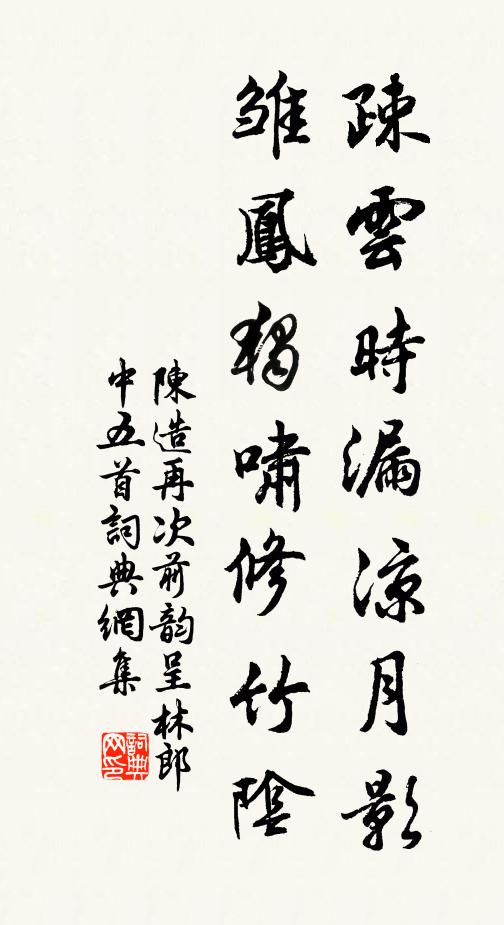 疎雲時漏凉月影
雛鳳獨嘯修竹陰
陳造再次前韵呈林郎
中五首詞典網集
詞典
网印